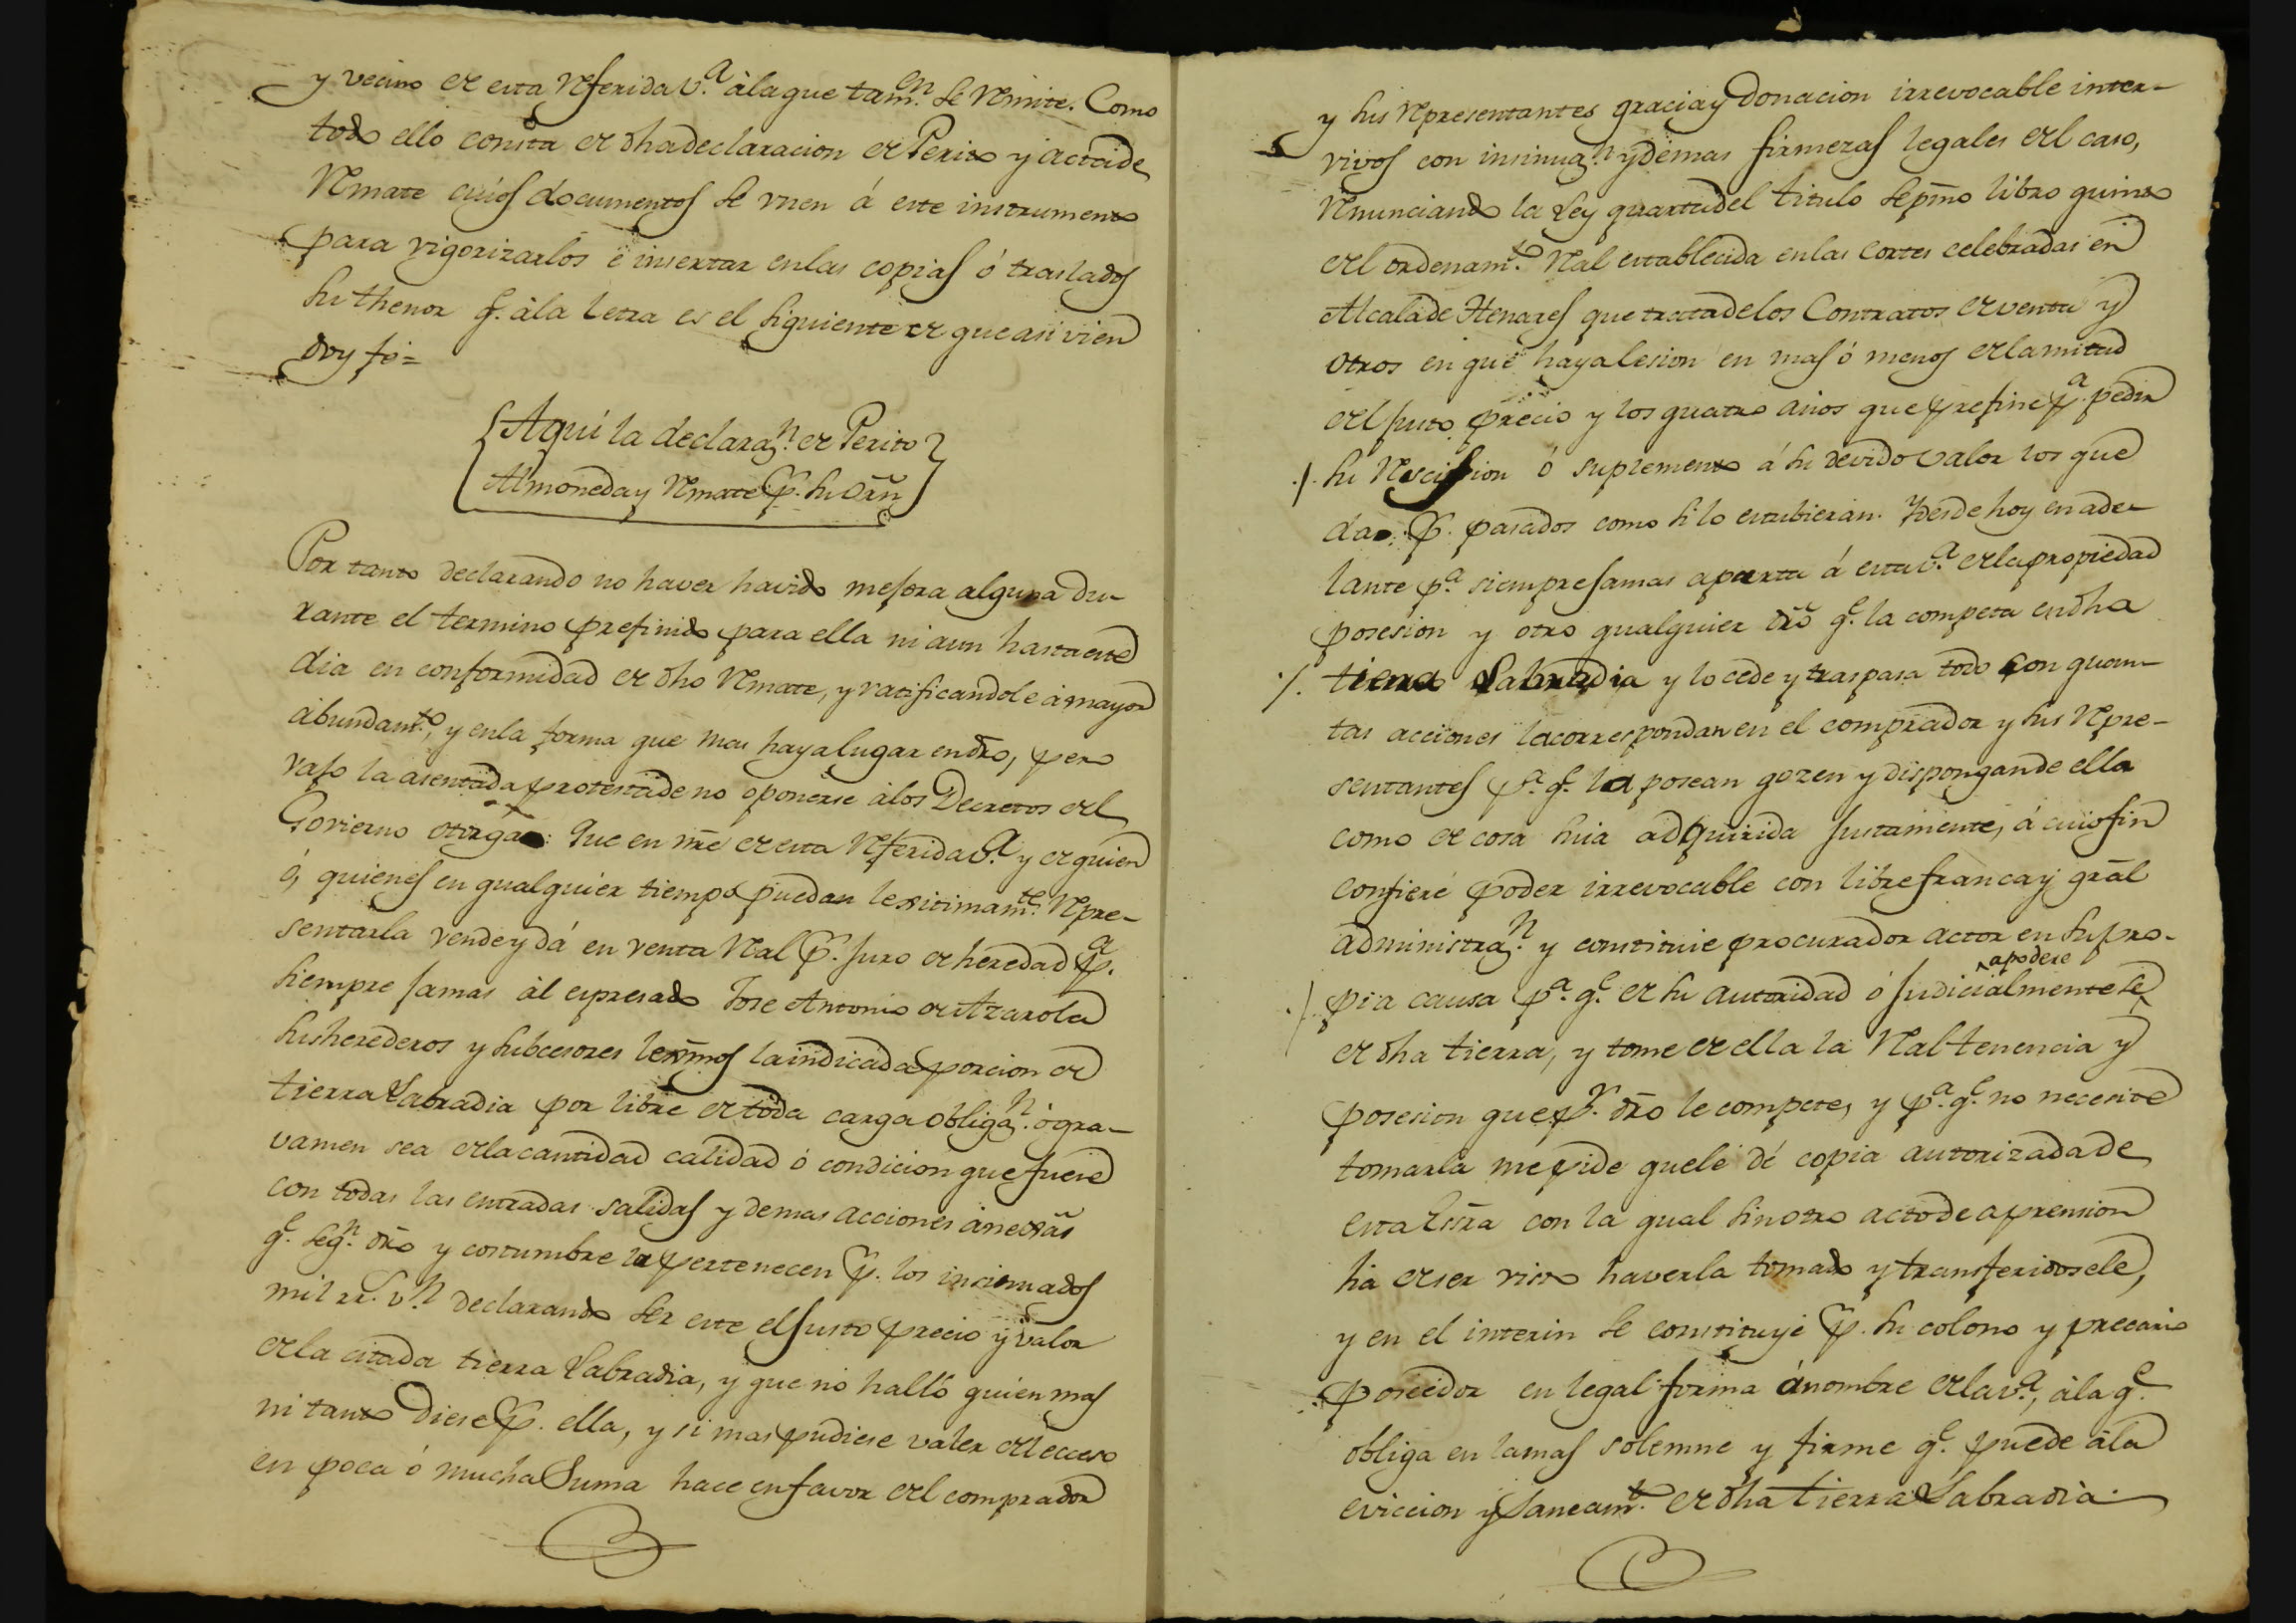 y vecino de esta referida V.ª à la que tamⁿ. se remite. Como
todo ello consta de dha declaracion de Perito y acta de
remate cuios documentos se vnen á este instrumento
para vigorizarlos è insertar en las copias ó traslados
su thenor q.ᵉ à la letra es el siguiente de que assi vien
doy fé=
Aquí la declaraⁿ. de Perito
Almoneda y remate p.ʳ su orñ
Por tanto declarando no haver havido mejora alguna du-
rante el termino prefinido para ella ni aun hasta este
dia en conformidad de dho remate, y ratificandole à mayor
abundamᵗᵒ, y en la forma que mas haya lugar en dro, pero
vajo la asentada protesta de no oponerse à los Decretos del
Govierno otorga: Que en nre de esta referida V.ª y de quien
ó, quienes en qualquier tiempo puedan lexitimamᵗᵉ. repre-
sentarla vende y dá en venta real p.ʳ juro de heredad p.ª
siempre jamas àl espresado Jose Antonio de Azarola
sus herederos y subcesores lexmos la indicada porcion de
tierra Labradia por libre de toda carga obligaⁿ. ò gra-
vamen sea de la cantidad calidad ó condicion que fuese
con todas las entradas salidas y demas acciones anexâs
q.ᵉ segⁿ. dro y costumbre la pertenecen p.ʳ los insinuados
mil rr.ˢ v.ⁿ declarando ser este el justo precio y valor
de la citada tierra Labradia, y que no halló quien mas
ni tanto diese p.ʳ ella, y si mas pudiese valer del exceso
en poca ó mucha Suma hace en favor del comprador
y sus representantes gracia y Donacion irrevocable inter-
vivos con insinuaⁿ. y demas firmezas legales del caso,
renunciando la Ley quarta del titulo sepmo libro quinto
del ordenamᵗᵒ. real establecida en las Cortes celebradas en
Alcala de Henares que trata de los Contratos de venta y
otros en que haya lesion en mas ó menos de la mitad
del justo precio y los quatro años que prefine p.ª pedir
su rescision ó suplemento á su devido valor los que
da p.ʳ pasados como si lo estubieran. Y desde hoy en ade-
lante p.ª siempre jamas aparta á esta V.ª de la propiedad
posesion y otro qualquier dro q.ᵉ la competa en dha
tierra Labradia y lo cede y traspasa todo con quan-
tas acciones la correspondan en el comprador y sus repre-
sentantes p.ª q.ᵉ la posean gozen y dispongan de ella
como de cosa suia adquirida justamente, á cuio fin
confiere poder irrevocable con libre franca y gral
administraⁿ. y constituie procurador actor en su pro-
apodere
pia causa p.ª q.ᵉ de su autoridad ó judicialmente se
de dha tierra, y tome de ella la real tenencia y
posesion que p.ʳ dro le compete, y p.ª q.ᵉ no necesite
tomarla me pide que le dé copia autorizada de
esta Esra con la qual sin otro acto de aprension
ha de ser visto haverla tomado y transferidosele,
y en el interin se constituye p.ʳ su colono y precario
posedor en legal forma á nombre de la V.ª, à la q.ᵉ
obliga en la mas solemne y firme q.ᵉ puede àla
eviccion y saneamᵗᵒ. de dha tierra Labradia.